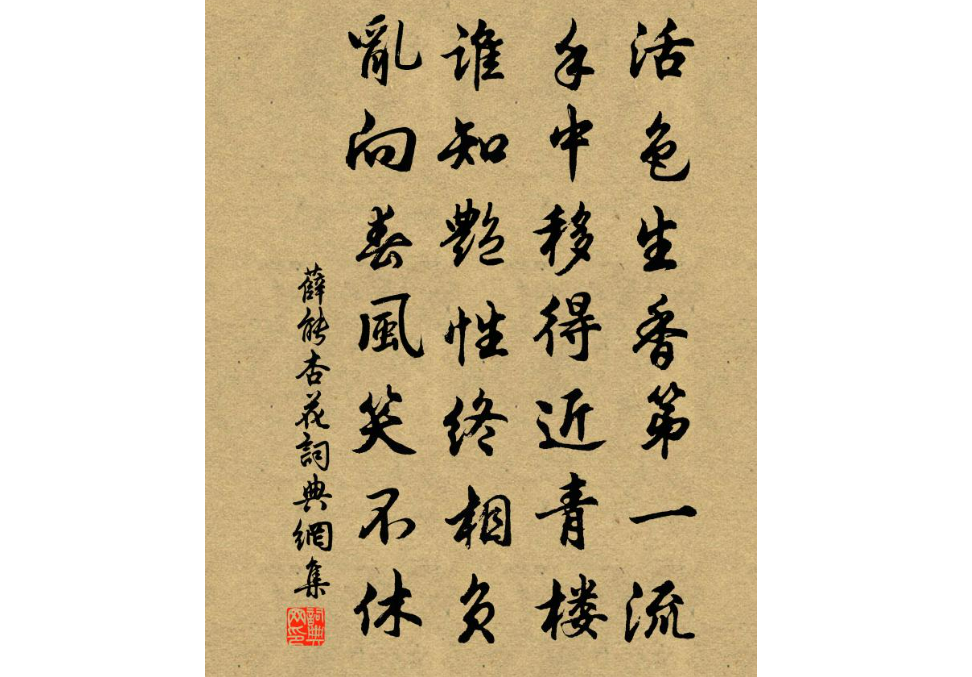 活色生香第一流
手中移得近青楼
谁知艷性终相负
亂向春風笑不休
薛能杏花詞典網集
詞典网印